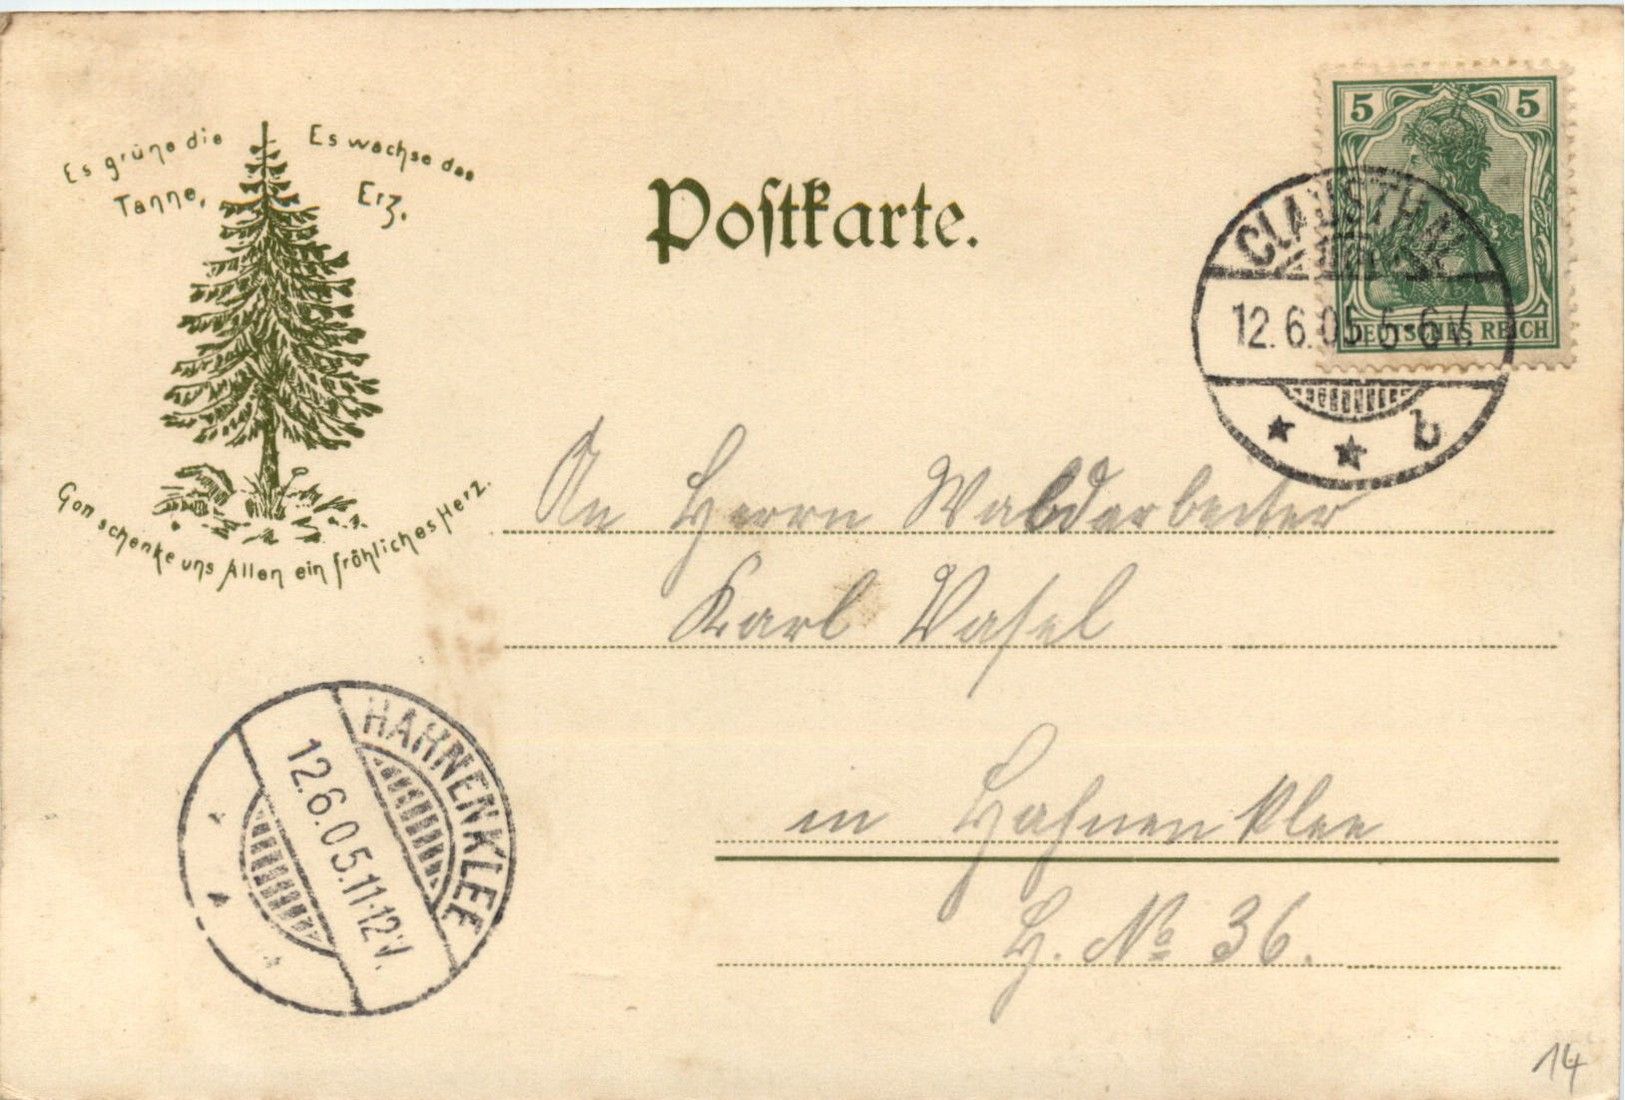 Es grüne die
Tanne,
Es wachse das
Erz.
Gott schenke uns Allen ein fröhliches Herz.
Postkarte.
5 5
DEUTSCHES REICH
CLAUSTHAL
12.6.05 5-6V.
b
An Herrn Waldarbeiter
Karl Vasel
in Hahnenklee
H. No 36.
HAHNENKLEE
12.6.05.11-12V.
14